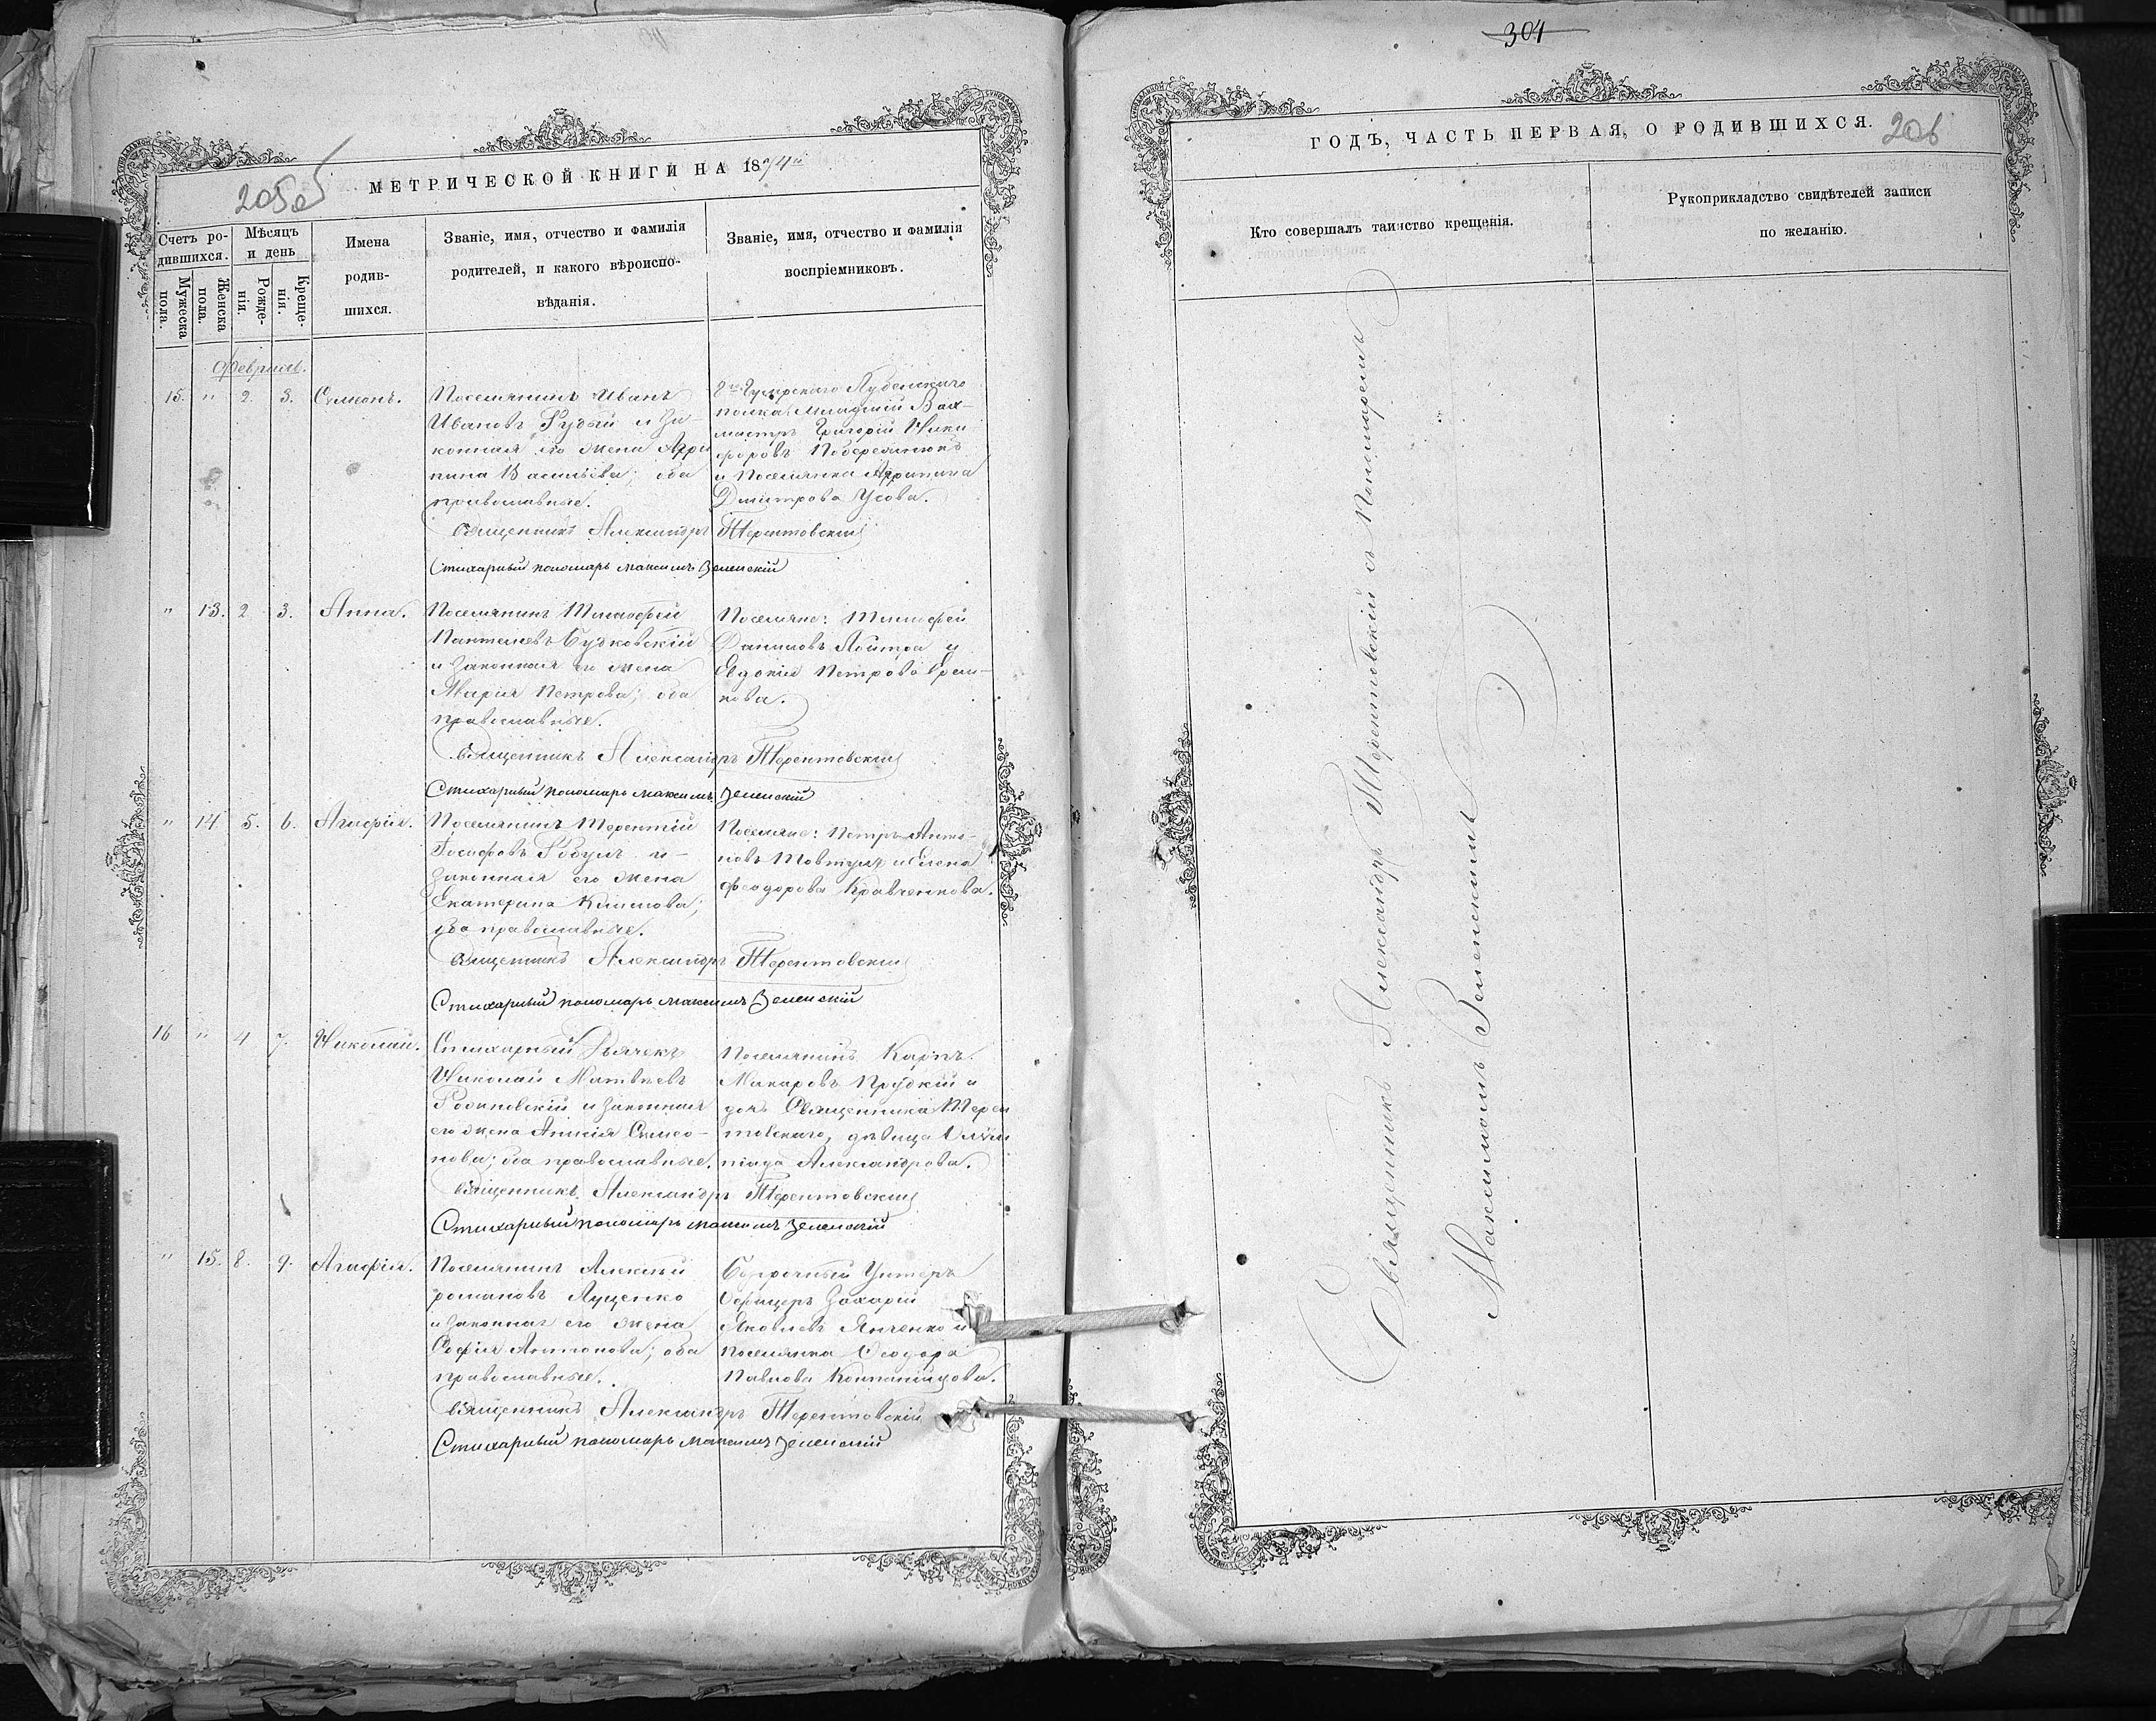 205об
МЕТРИЧЕСКОЙ КНИГИ НА 1874й
Счетъ ро-
дившихся.
Мужеска
пола.
Женска
пола.
Мѣсяцъ
и день
Рожде-
нія.
Креще-
нія.
Имена
родив-
шихся.
Званіе, имя, отчество и фамилія
родителей, и какого вѣроиспо-
вѣданія.
Званіе, имя, отчество и фамилія
воспріемниковъ.
Февраль.
15. " 2. 3. Симеонъ.
Поселянинъ Иванъ
Ивановъ Рудый и За-
конная его жена Агри
пина Васильева; оба
православные.
Гусарскаго Лубенскаго
полка, Младшій Вах-
мистръ Григорій Ники
форовъ
и Поселянка Агрипина
Дмитрова Усова.
Священникъ Александръ Терентовскій
Стихарный пономарь Максимъ Зеленскій
" 13. 2 3. Анна.
Поселянинъ Тимофей
Пантелеевъ Бучковскій
и Законная его жена
Марія Петрова; оба
православные.
Поселяне: Тимофей
Даниловъ Койтра и
Евдокія Петрова
Священникъ Александръ Терентовскій
Стихарный пономарь Максимъ Зеленскій
" 14. 5. 6. Агафія.
Поселянинъ Терентій
Іосифовъ и
Законная его жена
Екатерина Климова;
оба православные.
Поселяне: Петръ Анто-
новъ Товтулъ и Елена
Феодорова Кравченкова.
Священникъ Александръ Терентовскій
Стихарный пономарь Максимъ Зеленскій
16 " 4 7. Николай.
Стихарный Дьячекъ
Николай Матвѣевъ
Розановскій и Законная
его жена Анисія Симео-
нова; оба православные.
Поселянинъ Карпъ
Макаровъ Прудкій и
дочь Священника Терен
товскаго, дѣвица Олим
піада Александрова.
Священникъ Александръ Терентовскій
Стихарный пономарь Максимъ Зеленскій
" 15. 8. 9. Агафія.
Поселянинъ Алексѣй
Романовъ Луценко
и Законная его жена
Софія Антонова; оба
православные.
Унтеръ
Офицеръ Захарій
Яковлевъ Янченко и
поселянка Феодора
Павлова Компанійцова.
Священникъ Александръ Терентовскій
Стихарный пономарь Максимъ Зеленскій
304
ГОДЪ, ЧАСТЬ ПЕРВАЯ, О РОДИВШИХСЯ.
206
Кто совершалъ таинство крещенія.
Рукоприкладство свидѣтелей записи
по желанію.
Священникъ Александръ Терентовскій съ Пономаремъ
Максимомъ Зеленскимъ